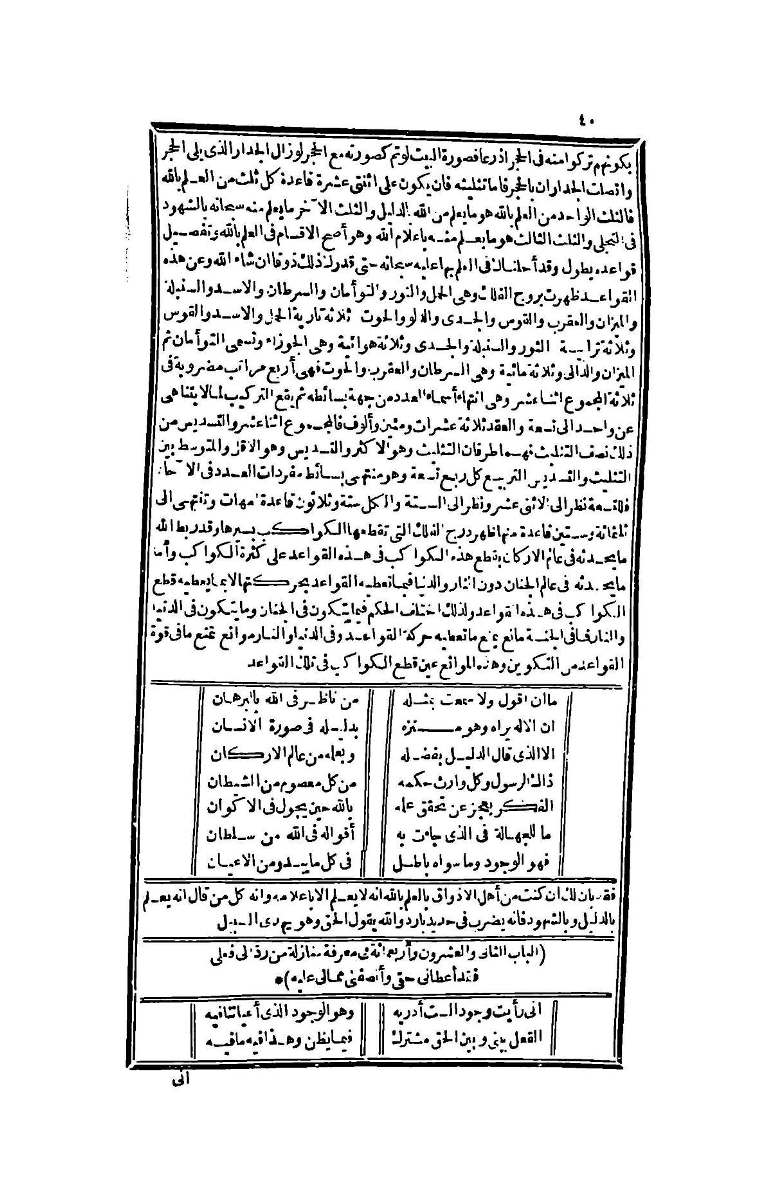 ٤٠
بكونهم تركوا منه في الحجر أذرعا فصورة البيت لو تم كصورته مع الحجر لو زال الجدار الذي يلي الحجر
واتصلت الجداران بالحجر فاما تثليثه فان يكون على اثنتي عشرة قاعدة كل ثلث من العلم بالله
فالثلث الواحد من العلم بالله هو ما يعلم من الله بالدليل والثلث الآخر ما يعلم منه سبحانه بالشهود
في التجلي والثلث الثالث هو ما يعلم منه باعلام الله وهو أصح الاقسام في العلم بالله وتفصيل
قواعده يطول وقد أحلناك في العلم بها عليه سبحانه حتى تدرك ذلك ذوقا ان شاء الله وعن هذه
القواعد ظهرت بروج الفلك وهي الحمل والثور والتوأمان والسرطان والاسد والسنبلة
والميزان والعقرب والقوس والجدى والدلو والحوت ثلاثة نارية الحمل والاسد والقوس
وثلاثة ترابية الثور والسنبلة والجدى وثلاثة هوائية وهي الجوزاء وتسمى التوأمان ثم
الميزان والدالى وثلاثة مائية وهي السرطان والعقرب والحوت فهي أربع مراتب مضروبة في
ثلاثة المجموع اثنا عشر وهي انتهاء أسماء العدد من جهة بسائطه ثم يقع التركيب لما لا يتناهى
عن واحد الى تسعة والعقد ثلاثة عشرات ومئين وألوف فالمجموع اثنا عشر والتسديس من
ذلك نصف التثليث فهما طرفان التثليث وهو الاكثر والتسديس وهو الاقل والمتوسط بين
التثليث والتسديس التربيع كل ربع تسعة وهو منتهى بسائط مفردات العدد في الآحاد
فللتسعة نظر الى الاثني عشر ونظر الى الستة والكل ستة وثلاثون قاعدة أمهات وتنتهى الى
ثلثمائة وستين قاعدة منها ظهر درج الفلك التي تقطعها الكواكب بسيرها وقد ربط الله
ما يحدثه في عالم الاركان بقطع هذه الكواكب في هذه القواعد على كثرة الكواكب وأما
ما يحدثه في عالم الجنان دون النار والدنيا فبما تعطيه القواعد بحركتها لا بما يعطيه قطع
الكواكب في هذه القواعد ولذلك اختلف الحكم فيما يتكون في الجنان وما يتكون في الدنيا
والنار فما في الجنة مانع يمنع ما تعطيه حركة القواعد وفي الدنيا والنار موانع تمنع ما في قوة
القواعد من التكوين وهذه الموانع عين قطع الكواكب في تلك القواعد
ما ان أقول ولا سمعت بمثله من ناظر في الله بالبرهان
ان الاله يراه وهو منزه بدليله في صورة الانسان
الا الذي قال الدليل بفضله وبعلمه من عالم الاركان
ذاك الرسول وكل وارث حكمه من كل معصوم من الشيطان
الفكر يعجز عن تحقق علمه بالله حين يجول في الاكوان
ما للجهالة في الذي جاءت به أقواله في الله من سلطان
فهو الوجود وما سواه باطل في كل ما يبدو من الاعيان
فقد بان لك ان كنت من أهل الاذواق بالعلم بالله انه لا يعلم الا باعلامه وانه كل من قال انه يعلم
بالدليل وبالشهود فانه يضرب في حديد بارد والله يقول الحق وهو يهدى السبيل
(الباب الثاني والعشرون وأربعمائة في معرفة منازلة من رد الى فعلى
فقد أعطانى حقى وأنصفنى ممالى عليه)*
انى رأيت وجود الست أدريه وهو الوجود الذي أعياننا فيه
الفعل بينى وبين الحق مشترك فيما يظن وهذا فيه ما فيه
انى